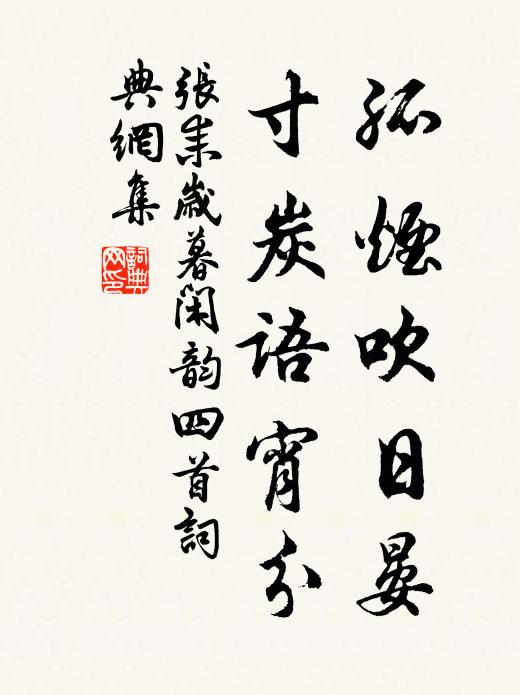 孤煙吹日晏
寸炭語宵分
張耒歲暮閑韵四首詞
典網集
詞典網印